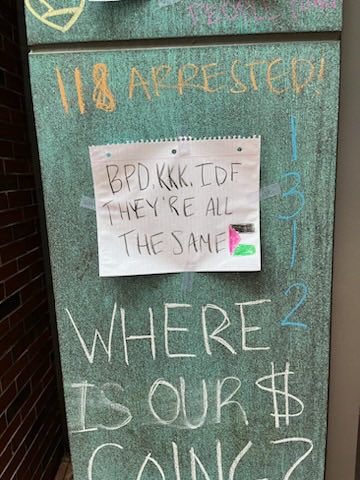 118 ARRESTED!
BPD, KKK, IDF
THEY'RE ALL
THE SAME
1
3
1
2
WHERE
IS OUR $
GOING?